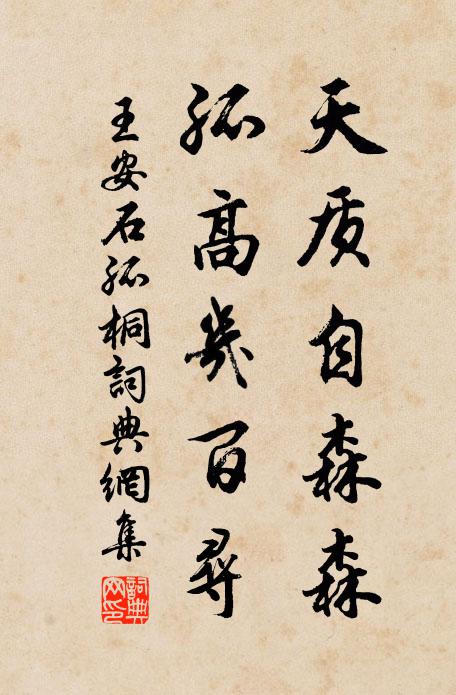 天质自森森
孤高幾百尋
王安石孤桐詞典網集
詞典網印